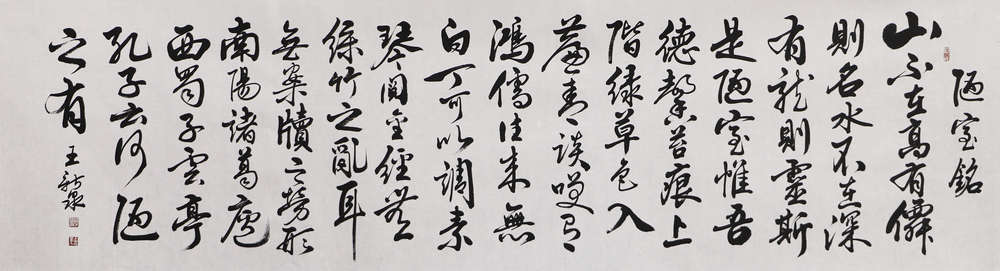 陋室銘
山不在高有僊
則名水不在深
有龍則靈斯
是陋室惟吾
德馨苔痕上
階緑草色入
簾青談咲有
鴻儒往來無
白丁可以調素
琴閱金經無
絲竹之亂耳
無案牘之勞形
南陽諸葛廬
西蜀子雲亭
孔子云何陋
之有
王